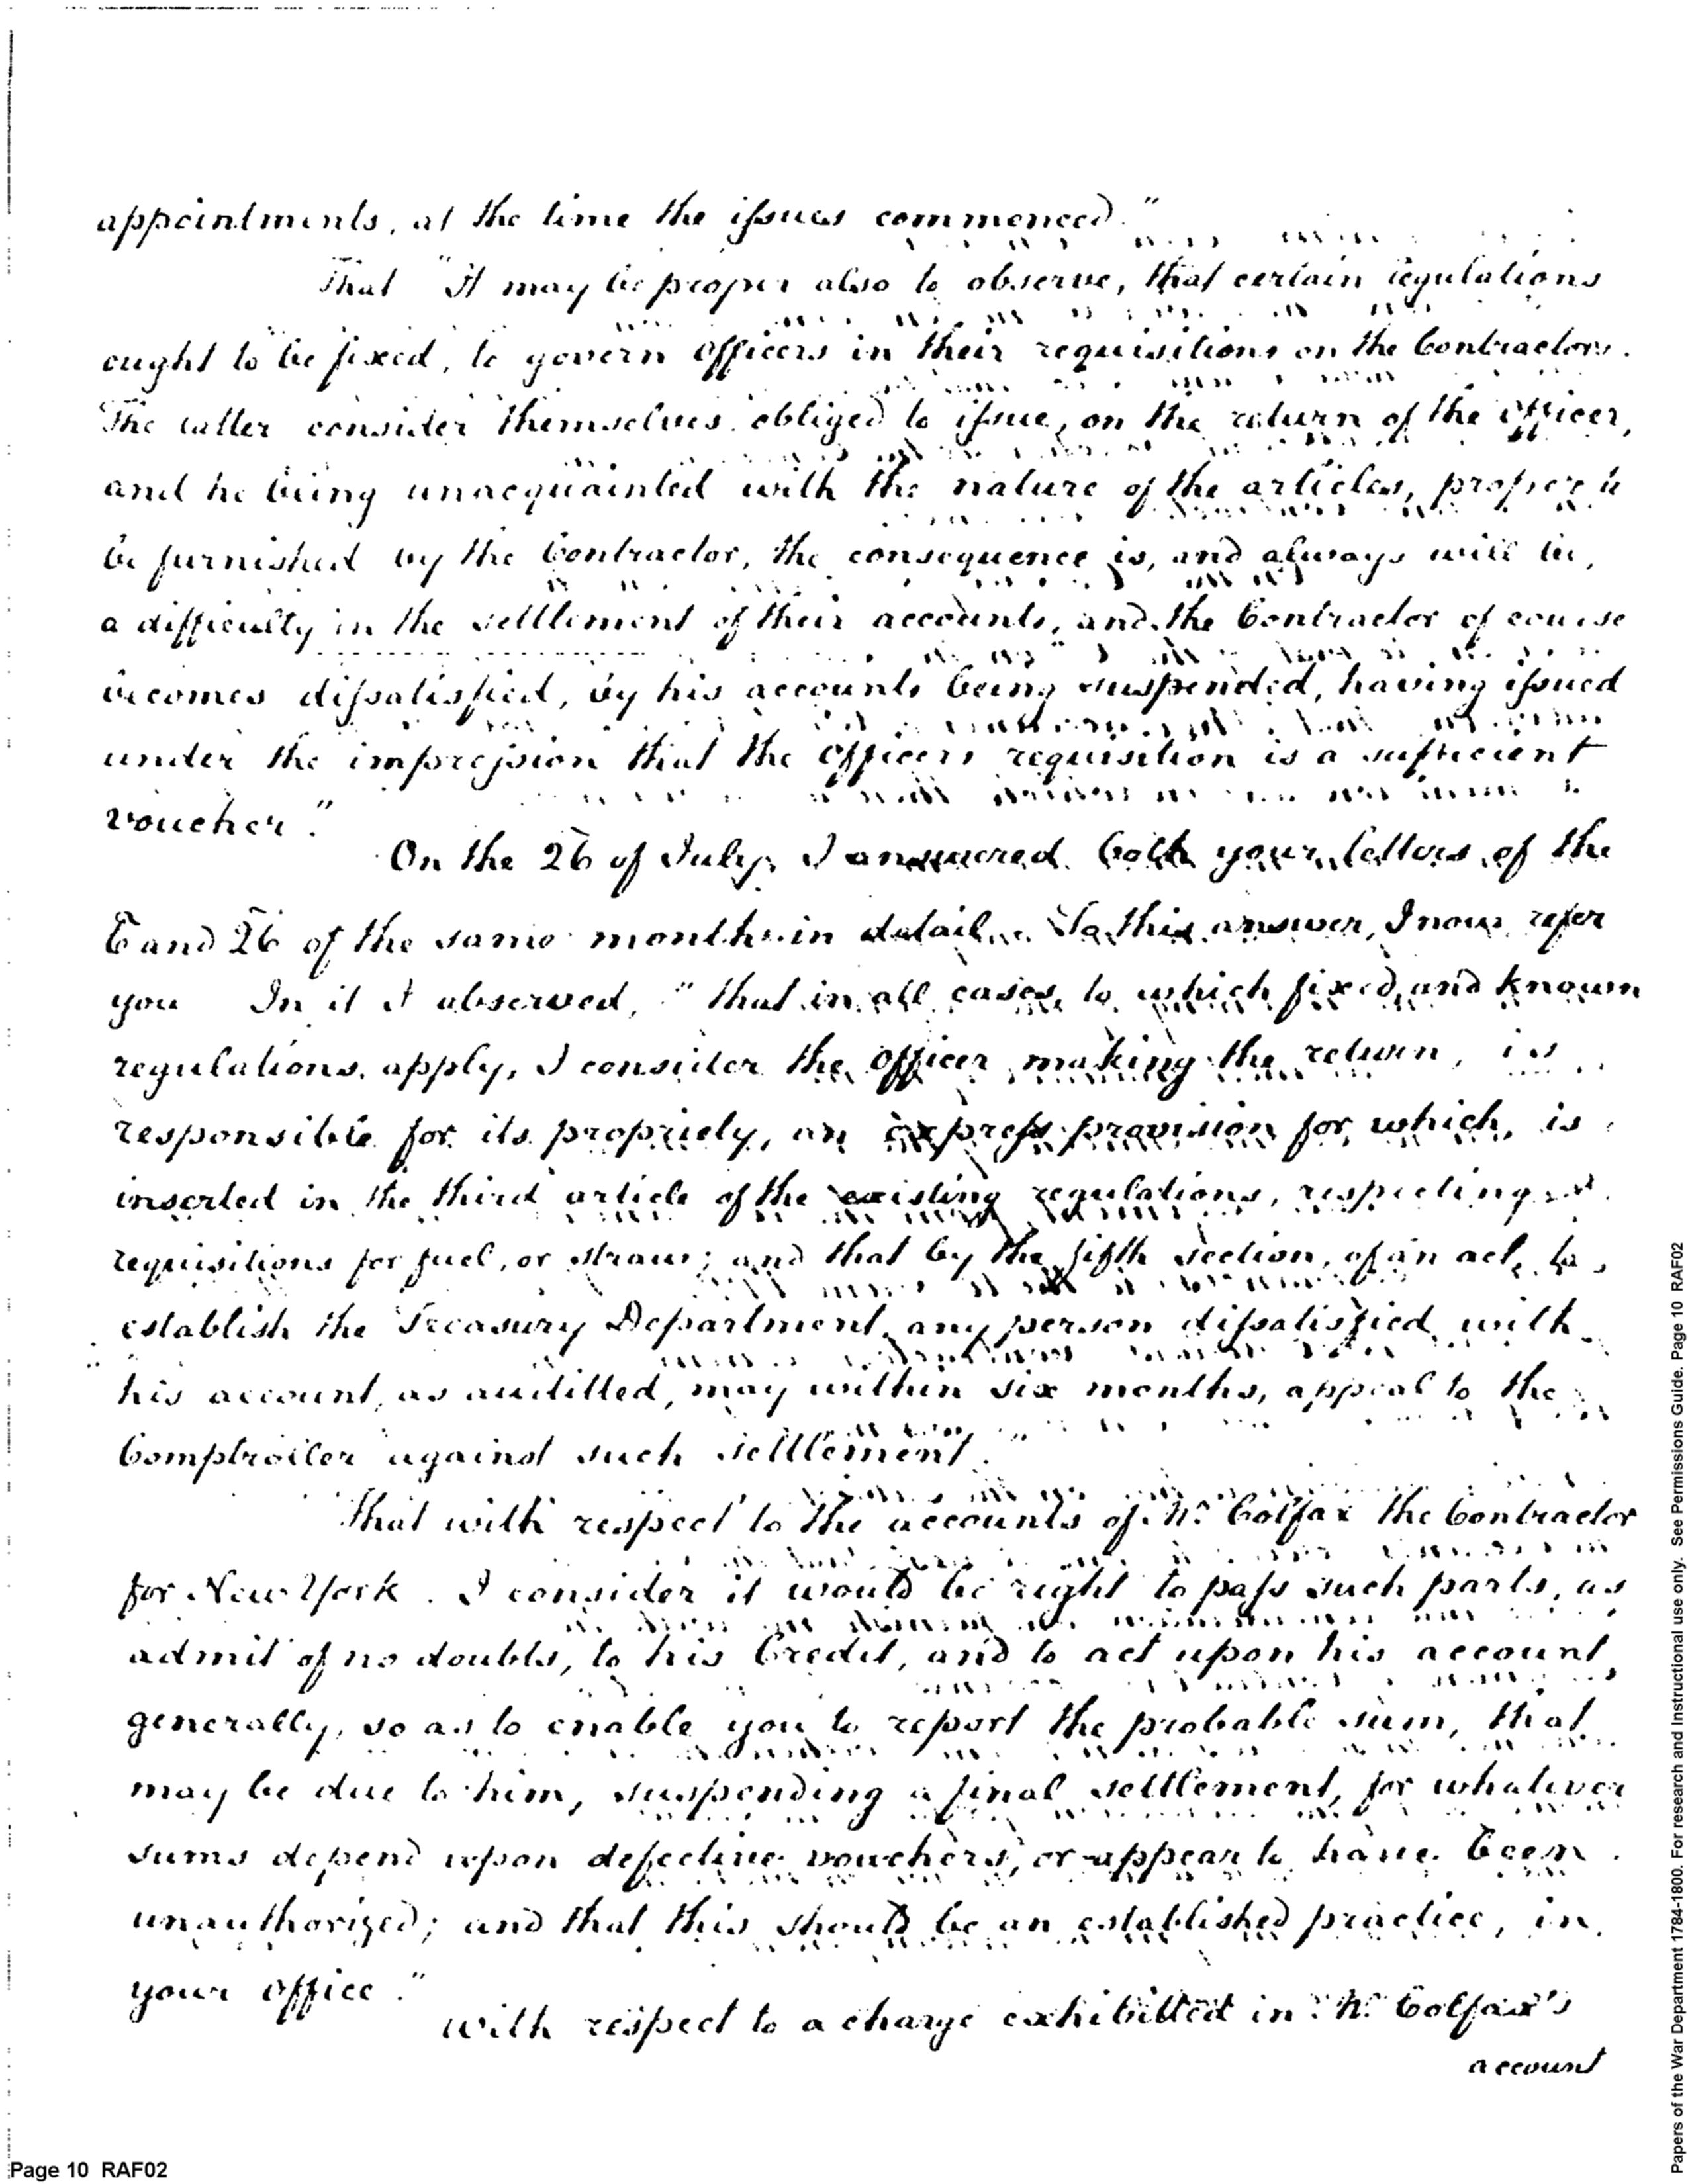 appointments, at the time the issues commenced."
That "It may be proper also to observe, that certain regulations
ought to be fixed, to govern officers in their requisitions on the Contractors.
The latter consider themselves obliged to issue, on the return of the officer,
and he being unacquainted with the nature of the articles, proper to
be furnished by the Contractor, the consequence is, and always will be,
a difficulty in the settlement of their accounts, and the Contractor of course
becomes dissatisfied, by his accounts being suspended, having issued
under the impression that the officers requisition is a sufficient
voucher."
On the 26 of July, I answered both your letters of the
6 and 26 of the same month in detail. To this answer, I now refer
you In it I observed, "that in all cases, to which fixed and known
regulations apply, I consider the officer making the return, is
responsible for its propriety, an express provision for which, is
inserted in the third article of the existing regulations, respecting
requisitions for fuel, or straw; and that by the fifth section, of an act, to
establish the Treasury Department, any person dissatisfied with
his account, as auditted, may within six months, appeal to the
Comptroller against such settlement."
That with respect to the accounts of Mr. Colfax the Contractor
for New York. I consider it would be right to pass such parts, as
admit of no doubts, to his Credit, and to act upon his account
generally, so as to enable you to report the probable sum, that
may be due to him, suspending a final settlement, for whatever
sums depend upon defective vouchers, or appear to have been
unauthorized; and that this should be an established practice, in
your office."
With respect to a charge exhibitted in Mr. Colfax's
account
Page 10 RAF02
Papers of the War Department 1784-1800. For research and Instructional use only. See Permissions Guide. Page 10 RAF02